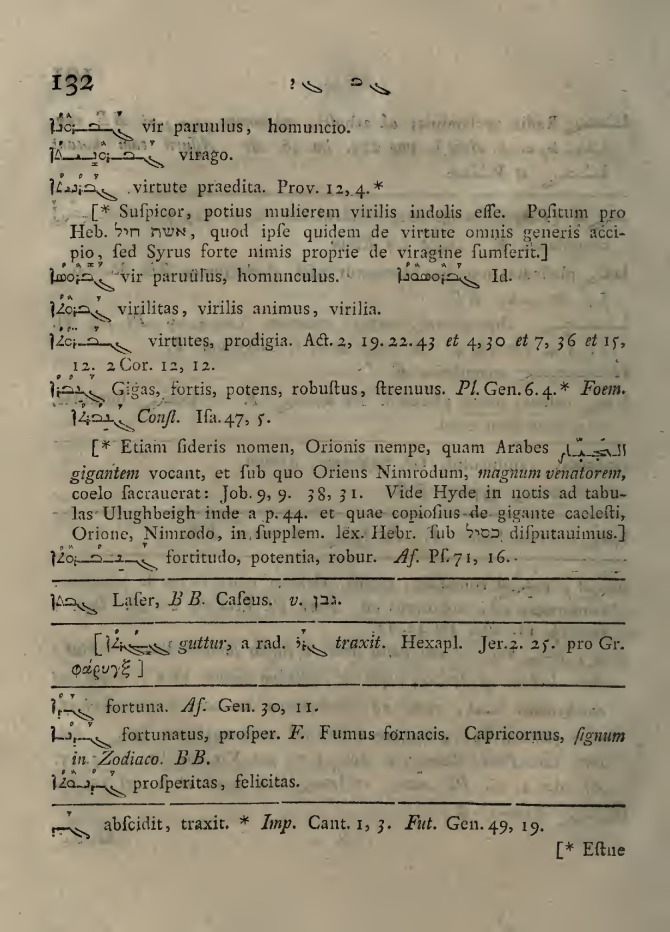 132 ܓ ܒ ܓ ܕ
ܓܒܪܘܢܐ vir paruulus, homuncio.
virago.
virtute praedita. Prov. 12, 4. *
[* Suſpicor, potius mulierem virilis indolis eſſe. Poſitum pro
Heb. אשת חיל, quod ipſe quidem de virtute omnis generis acci-
pio, ſed Syrus forte nimis proprie de viragine ſumſerit.]
ܓܒܪܘܣܐ vir paruulus, homunculus. ܓܒܪܘܣܘܢܐ Id.
ܓܒܪܘܬܐ virilitas, virilis animus, virilia.
ܓܒܪܘܬܐ virtutes, prodigia. Act. 2, 19. 22. 43 et 4, 30 et 7, 36 et 15,
12. 2 Cor. 12, 12.
ܓܢܒܪܐ Gigas, fortis, potens, robuſtus, ſtrenuus. Pl. Gen. 6. 4. * Foem.
Conſt. Iſa. 47, 5.
[* Etiam ſideris nomen, Orionis nempe, quam Arabes الجبار
gigantem vocant, et ſub quo Oriens Nimrodum, magnum venatorem,
coelo ſacrauerat: Job. 9, 9. 38, 31. Vide Hyde in notis ad tabu-
las Ulughbeigh inde a p. 44. et quae copioſius de gigante caeleſti,
Orione, Nimrodo, in ſupplem. lex. Hebr. ſub כסיל diſputauimus.]
ܓܢܒܪܘܬܐ fortitudo, potentia, robur. Aſ. Pſ. 71, 16.
ܓܒܬܐ Laſer, B B. Caſeus. v. גבן.
[ guttur, a rad. traxit. Hexapl. Jer. 2. 25. pro Gr.
φάρυγξ ]
ܓܕܐ fortuna. Aſ. Gen. 30, 11.
ܓܕܝܐ fortunatus, proſper. F. Fumus fornacis. Capricornus, ſignum
in Zodiaco. B B.
ܓܕܢܘܬܐ proſperitas, felicitas.
ܓܕ abſcidit, traxit. * Imp. Cant. 1, 3. Fut. Gen. 49, 19.
[* Eſtne